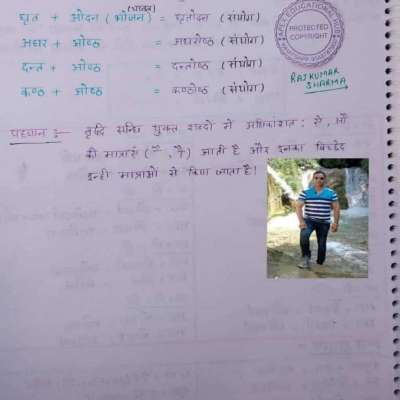 (चावल)
घृत + ओदन (भोजन) = घृतोदन (संयोग)
अधर + ओष्ठ = अधरोष्ठ (संयोग)
दन्त + ओष्ठ = दन्तोष्ठ (संयोग)
कण्ठ + ओष्ठ = कण्ठोष्ठ (संयोग)
PROTECTED
COPYRIGHT
RAJKUMAR
SHARMA
पहचान :- वृद्धि सन्धि युक्त शब्दों में अधिकांशत: ऐ, औ
की मात्राएं (ै, ौ) आती है और इनका विच्छेद
इन्हीं मात्राओं से किया जाता है!